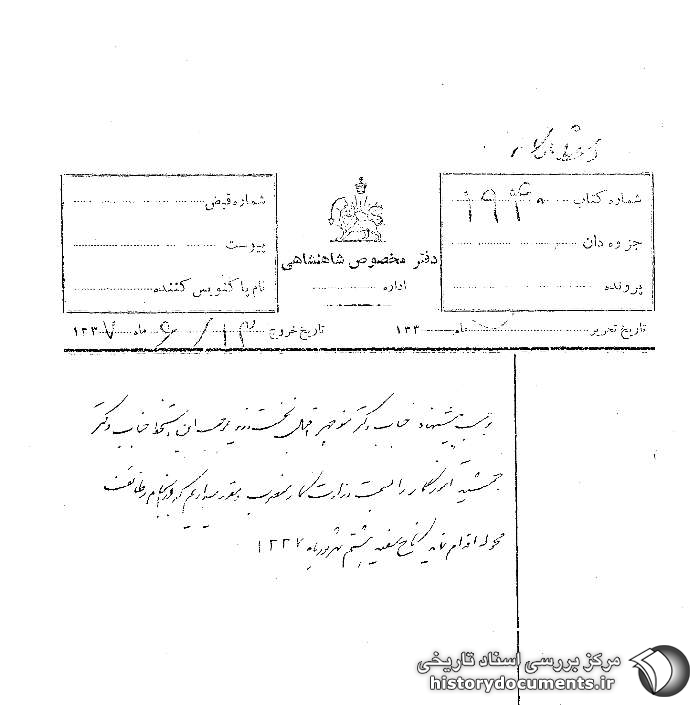 شماره کتاب ۱۹۴۰
جزوه دان
پرونده
دفتر مخصوص شاهنشاهی
اداره
شماره قبض
پیوست
نام پاکنویس کننده
تاریخ تحریر ماه ۱۳۳
تاریخ خروج ۱۳ / ۶ ماه ۱۳۳۷
پیشنهاد جناب دکتر منوچهر اقبال نخست وزیر این دستخط جناب دکتر
جمشید آموزگار را بسمت وزارت کار منصوب و مقرر میداریم که در انجام وظائف
محوله اقدام نماید کاخ سفید هشتم شهریور ماه ۱۳۳۷
مرکز بررسی اسناد تاریخی
historydocuments.ir